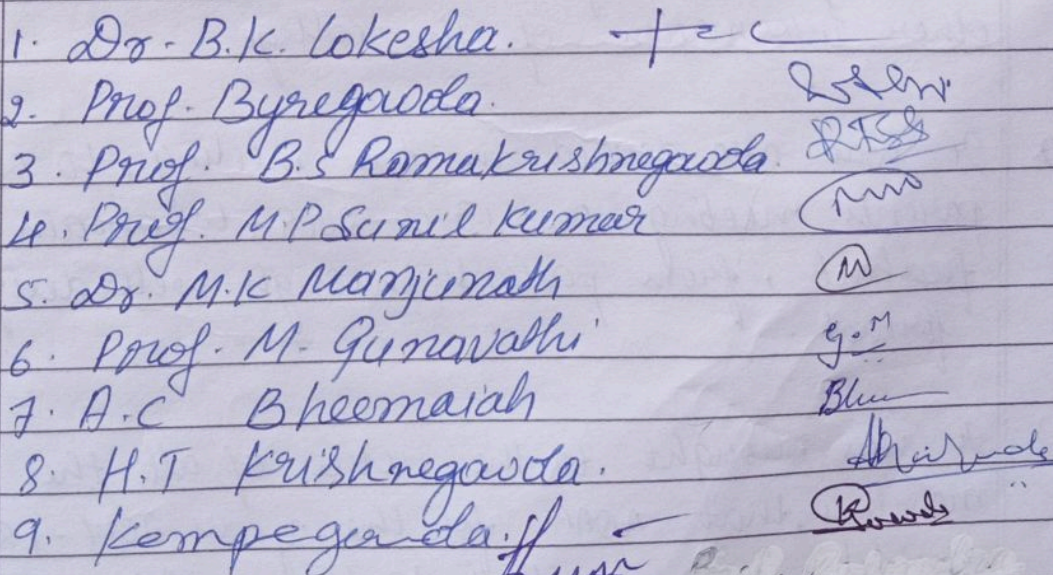 1. Dr. B.K. Lokesha.
2. Prof. Byregowda.
3. Prof. B.S Ramakrishnegowda
4. Prof. M.P Sunil Kumar
5. Dr. M.K Manjunath
6. Prof. M. Gunavathi g.M
7. A.C Bheemaiah
8. H.T Krishnegowda.
9. Kempegowda.